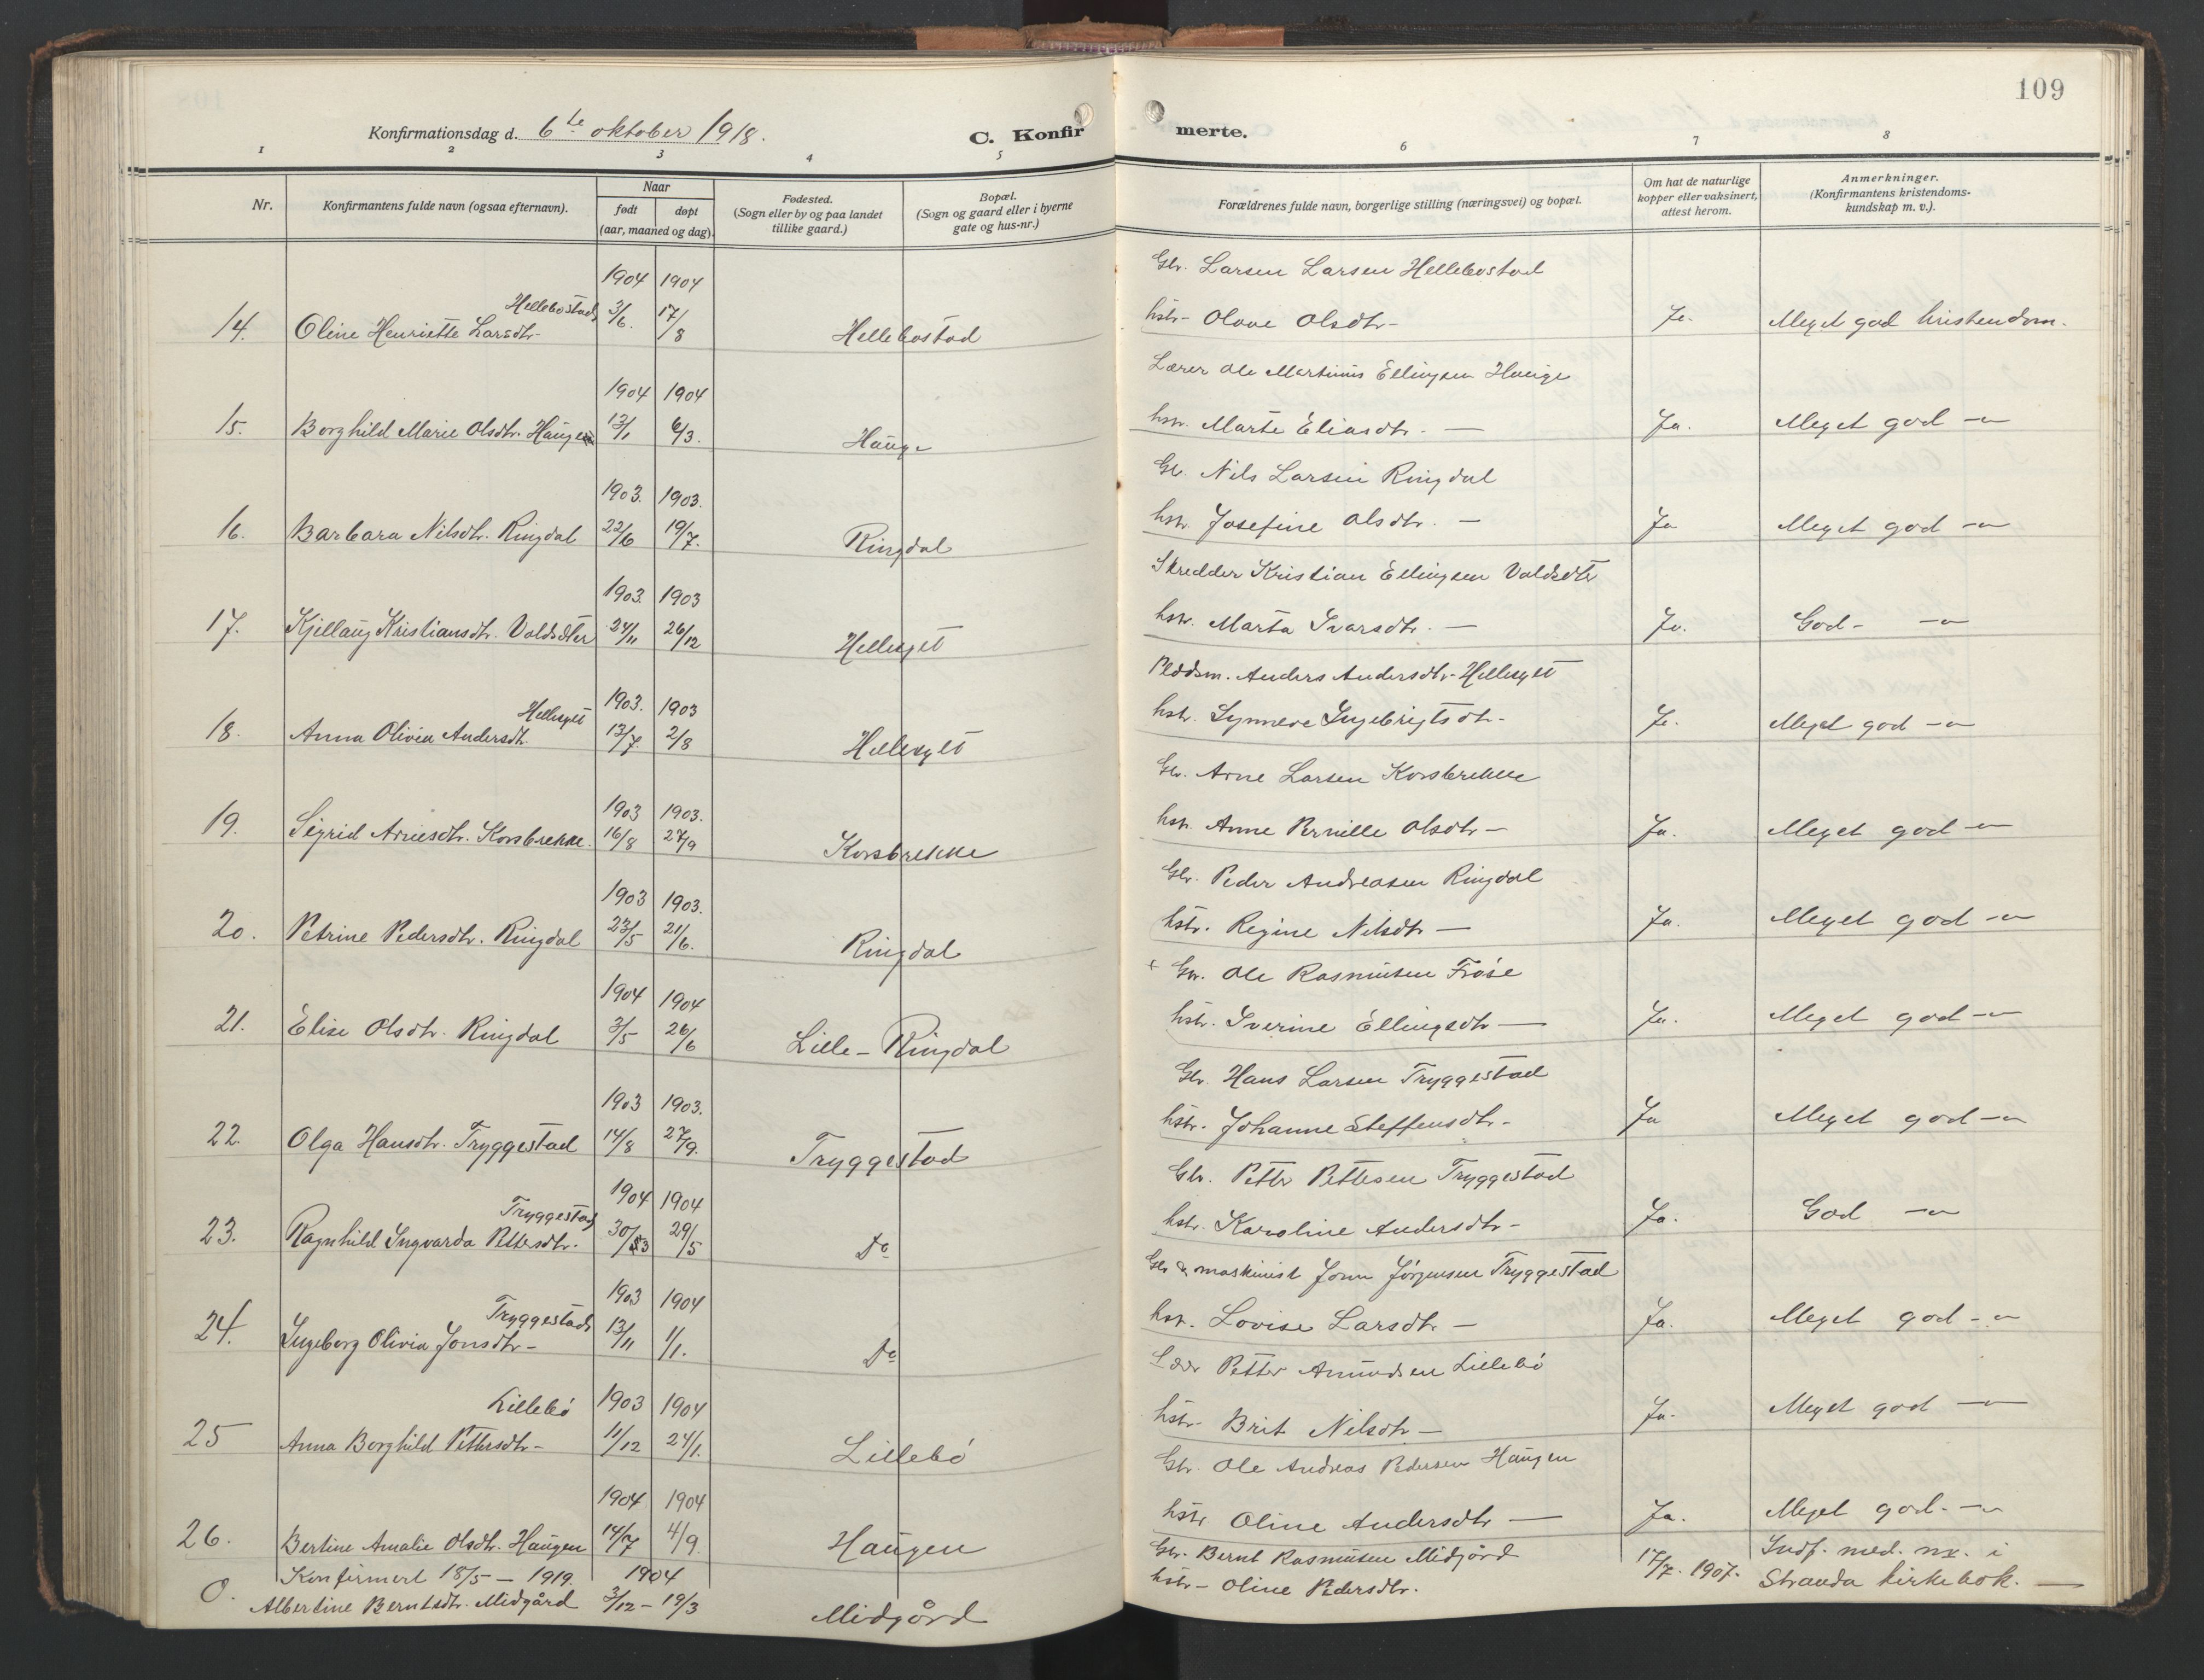 109
Konfirmationsdag d. 6te oktober 1918.
C. Konfirmerte.
1 2 3 4 5 6 7 8
Nr.
Konfirmantens fulde navn (ogsaa efternavn).
Naar
født
døpt
(aar, maaned og dag).
Fødested.
(Sogn eller by og paa landet
tillike gaard.)
Bopæl.
(Sogn og gaard eller i byerne
gate og hus-nr.)
Forældrenes fulde navn, borgerlige stilling (næringsvei) og bopæl.
Om hat de naturlige
kopper eller vaksinert,
attest herom.
Anmerkninger.
(Konfirmantens kristendoms-
kundskap m. v.).
1904 1904 Gbr. Larsen Larsen Hellebostad
Hellebostad
14. Oline Henriette Larsdtr. 3/6. 17/8 Hellebostad hstr- Olave Olsdtr- Ja. Meget god kristendom.
1904 1904 Lærer Ole Martinus Ellingsen Hauge
15. Borghild Marie Olsdtr. Hauge 13/1 6/3. Hauge hstr. Marte Eliasdtr. — Ja. Meget god —"—
1903. 1903. Gbr. Nils Larsen Ringdal
16. Barbara Nilsdtr. Ringdal 22/6 19/7. Ringdal hstr. Josefine Olsdtr. — Ja Meget god —"—
1903. 1903 Skredder Kristian Ellingsen Valdsæter
17. Kjellaug Kristiansdtr. Valdsæter 24/11 26/12 Hellesylt hstr. Marta Ivarsdtr. — Ja. God- —"—
1903. 1903 Pladsm. Anders Andersdtr- Hellesylt
Hellesylt
18. Anna Olivia Andersdtr. 13/7. 2/8 Hellesylt hstr. Synneve Ingebrigtsdtr- Ja. Meget god —"—
1903 1903. Gbr. Arne Larsen Korsbrekke
19. Sigrid Arnesdtr. Korsbrekke. 16/8 27/9 Korsbrekke hstr. Anne Pernille Olsdtr— Ja. Meget god —"—
1903 1903. Gbr. Peder Andreasen Ringdal
20. Petrine Pedersdtr. Ringdal 23/5 21/6. Ringdal hstr. Regine Nilsdtr — Ja. Meget god —"—
1904 1904 + Gbr. Ole Rasmusen Frøise
21. Elise Olsdtr. Ringdal 3/5 26/6 Lille-Ringdal hstr. Iverine Ellingsdtr — Ja. Meget god —"—
1903 1903. Gbr. Hans Larsen Tryggestad
22. Olga Hansdtr. Tryggestad 14/8 27/9. Tryggestad hstr. Johanne Steffensdtr- Ja Meget god —"—
1904 1904 Gbr. Petter Pettesen Tryggestad
Tryggestad
23. Ragnhild Ingvarda Pettersdtr. 30/3 29/5 Do hstr. Karoline Andersdtr- Ja. God —"—
1903 1904 Gbr & maskinist Jonn Jørgensen Tryggestad
Tryggestad
24. Ingeborg Olivia Jonsdtr- 13/11 1/1. Do hstr. Lovise Larsdtr. — Ja. Meget god —"—
Lillebø 1903 1904 Petter Amundsen Lillebø
25 Anna Borghild Pettersdtr- 11/12 24/1. Lillebø hstr- Brit Nilsdtr — Ja. Meget god —"—
1904 1904 Gbr. Ole Andreas Pedersen Haugen
26. Bertine Amalie Olsdtr. Haugen 14/7 4/9. Haugen hstr. Oline Andersdtr — Ja. Meget god. —"—
Konfirmert 18/5 — 1919. 1904 Gbr. Bernt Rasmusen Midgård 17/7. 1907. Indf. med. nr. i
0. Albertine Berntsdtr. Midgård 3/12 - 19/3 Midgård hstr- Oline Pedersdtr. Stranda kirkebok. —